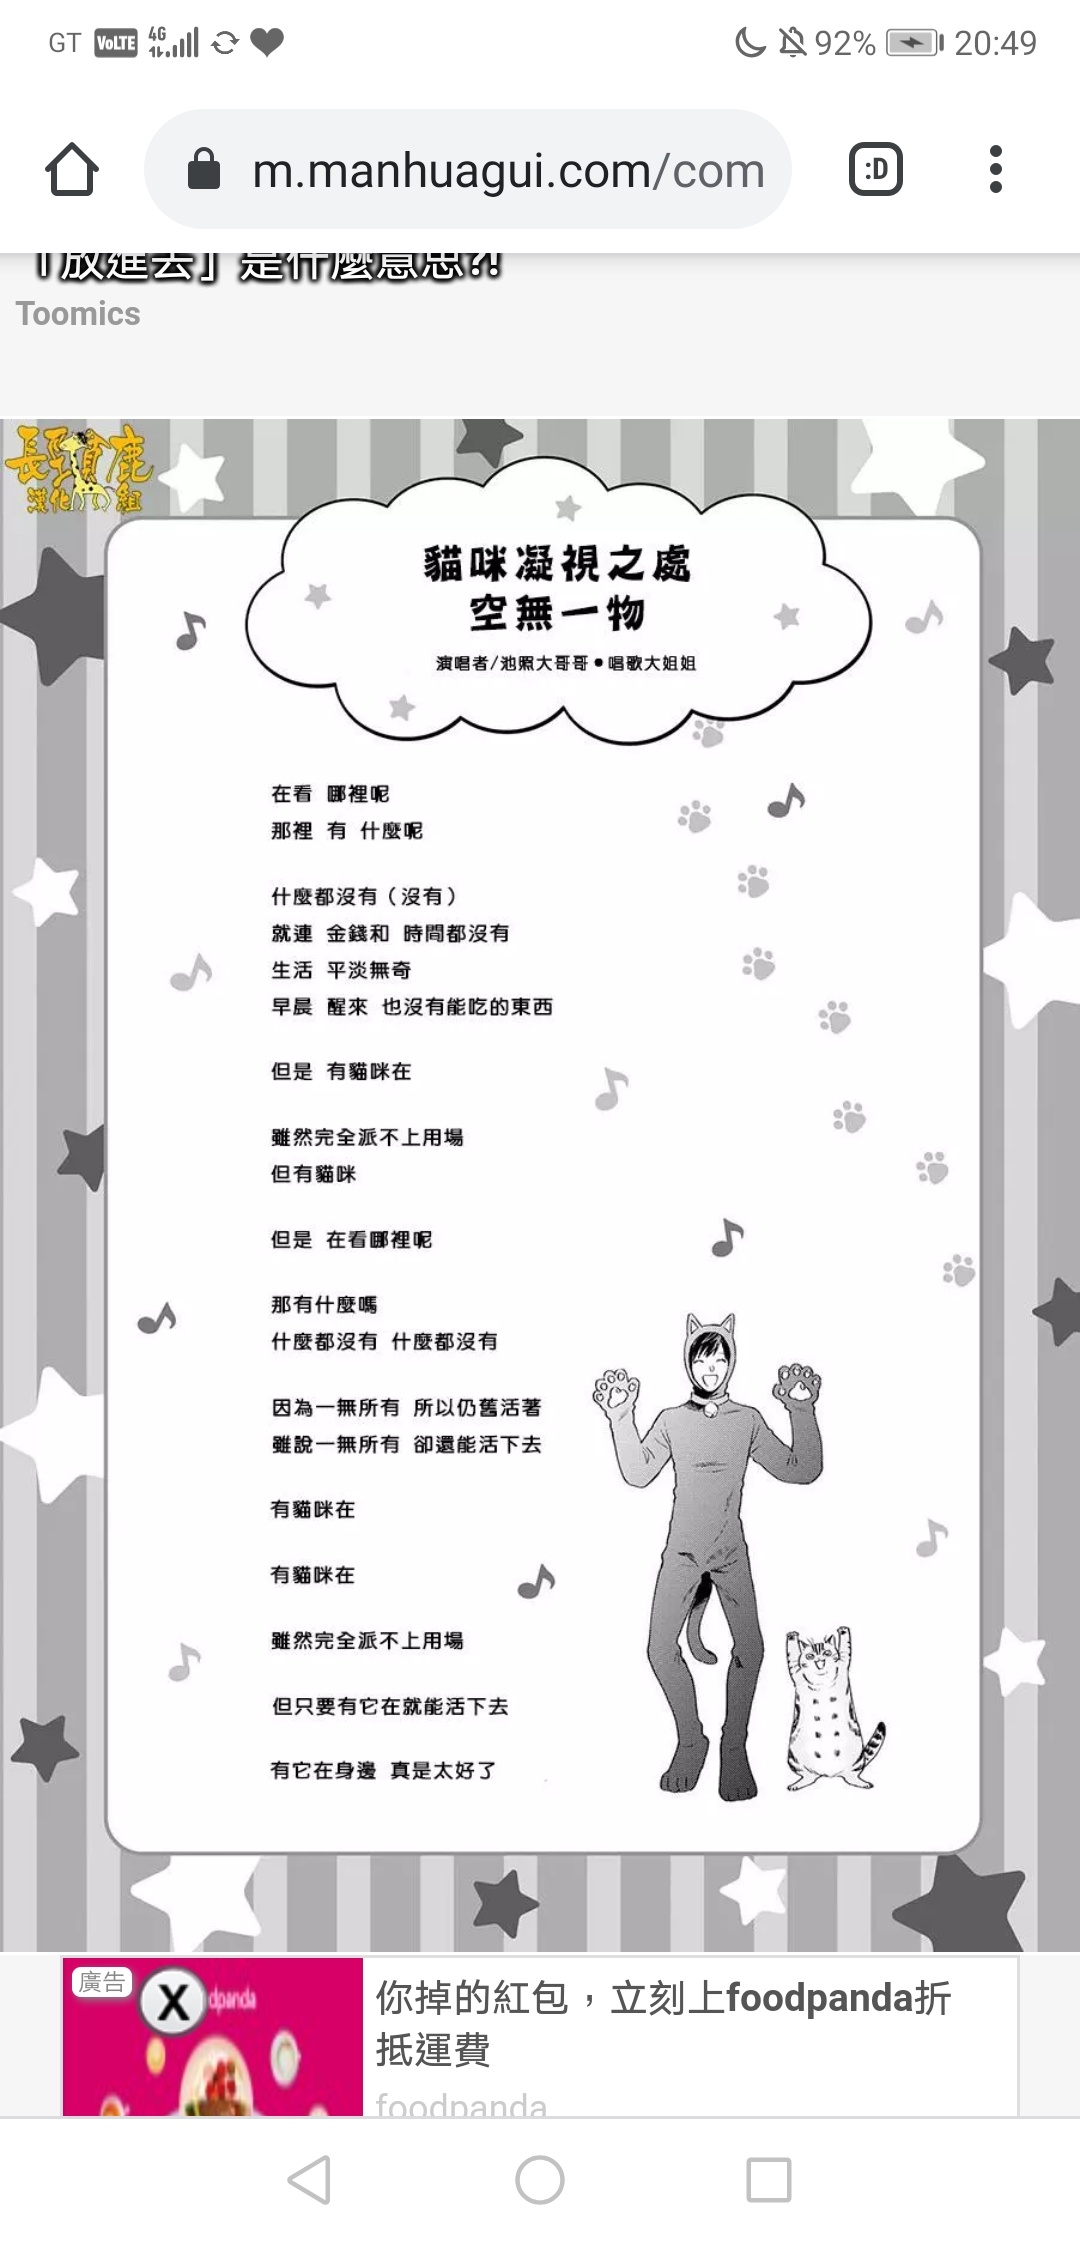 GT VoLTE 4G 92% 20:49
m.manhuagui.com/com :D
「放進去」是什麼意思?!
Toomics
長頸鹿
漢化組
貓咪凝視之處
空無一物
演唱者/池照大哥哥•唱歌大姐姐
在看 哪裡呢
那裡 有 什麼呢
什麼都沒有（沒有）
就連 金錢和 時間都沒有
生活 平淡無奇
早晨 醒來 也沒有能吃的東西
但是 有貓咪在
雖然完全派不上用場
但有貓咪
但是 在看哪裡呢
那有什麼嗎
什麼都沒有 什麼都沒有
因為一無所有 所以仍舊活著
雖說一無所有 卻還能活下去
有貓咪在
有貓咪在
雖然完全派不上用場
但只要有它在就能活下去
有它在身邊 真是太好了
廣告 X dpanda
你掉的紅包，立刻上foodpanda折
抵運費
foodpanda